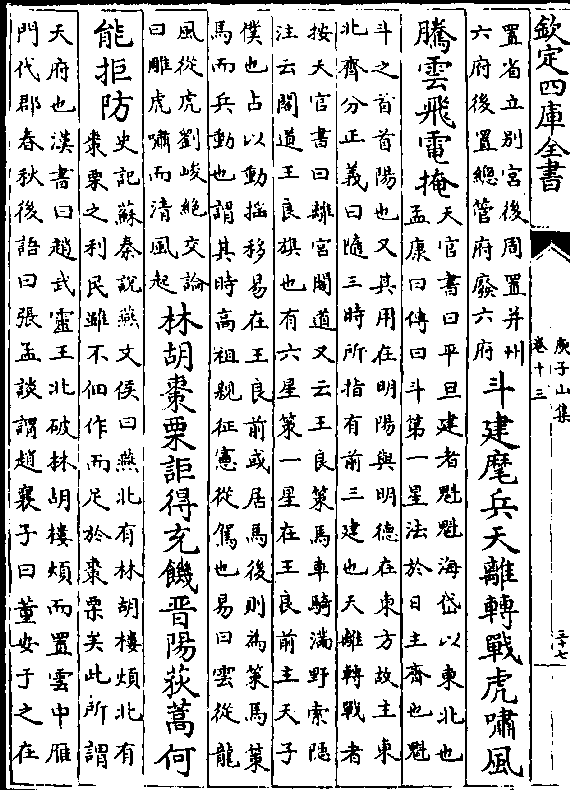 欽定四庫全書
庾子山集
卷十三
三十七
置省立别宮後周置并州
六府後置總管府廢六府
斗建麾兵天離轉戰虎嘯風
騰雲飛電掩
天官書曰平旦建者魁魁海岱以東北也
孟康曰傳曰斗第一星法於日主齊也魁
斗之首首陽也又其用在明陽與明德在東方故主東
北齊分正義曰隨三時所指有前三建也天離轉戰者
按天官書曰離宮閣道又云王良策馬車騎滿野索隱
注云閣道王良旗也有六星策一星在王良前主天子
僕也占以動揺移易在王良前或居馬後則為策馬策
馬而兵動也謂其時高祖親征憲從駕也易曰雲從龍
風從虎劉峻絶交論
曰雕虎嘯而清風起
林胡棗栗詎得充饑晋陽荻蒿何
能拒防
史記蘇秦說燕文侯曰燕北有林胡樓煩北有
棗栗之利民雖不佃作而足於棗栗矣此所謂
天府也漢書曰趙武靈王北破林胡樓煩而置雲中雁
門代郡春秋後語曰張孟談謂趙襄子曰董安于之在